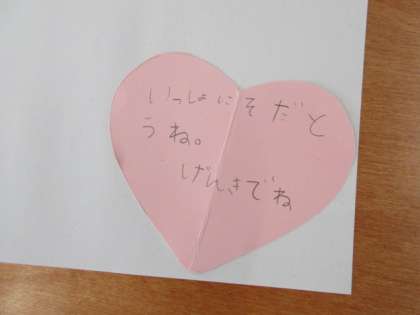 いっしょにそだと
うね。
げんきでね